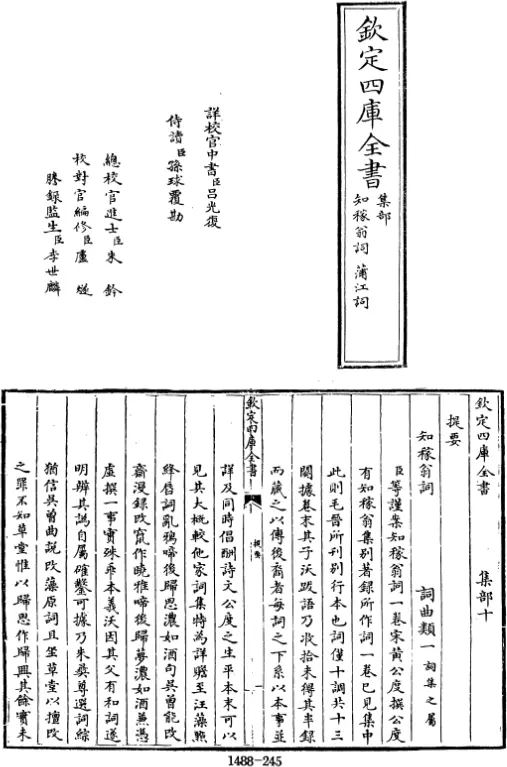 欽定四庫全書
集部
知稼翁詞 蒲江詞
詳校官中書臣呂光復
侍讀臣孫球覆勘
總校官進士臣朱鈐
校對官編修臣盧遂
謄錄監生臣李世麟
欽定四庫全書 集部十
提要
知稼翁詞 詞曲類一詞集之屬
臣等謹案知稼翁詞一卷宋黃公度撰公度
有知稼翁集別著錄所作詞一卷已見集中
此則毛晉所刊別行本也詞僅十調共十三
闋據卷末其子沃跋語乃收拾未得其半錄
而藏之以傳後裔者每詞之下系以本事並
欽定四庫全書
提要
詳及同時倡酬詩文公度之生平本末可以
見其大概較他家詞集特為詳贍至汪藻㸃
絳唇詞亂鴉啼後歸思濃如酒句吳曾能改
齋漫録改竄作曉鴉啼後歸夢濃如酒兼憑
虛撰一事實殊乖本義沃因其父有和詞遂
明辨其譌自屬確鑿可據乃朱彝尊選詞綜
猶信吳曾曲說改藻原詞且坐草堂以擅改
之罪不知草堂惟以歸思作歸興其餘實未
1488-245